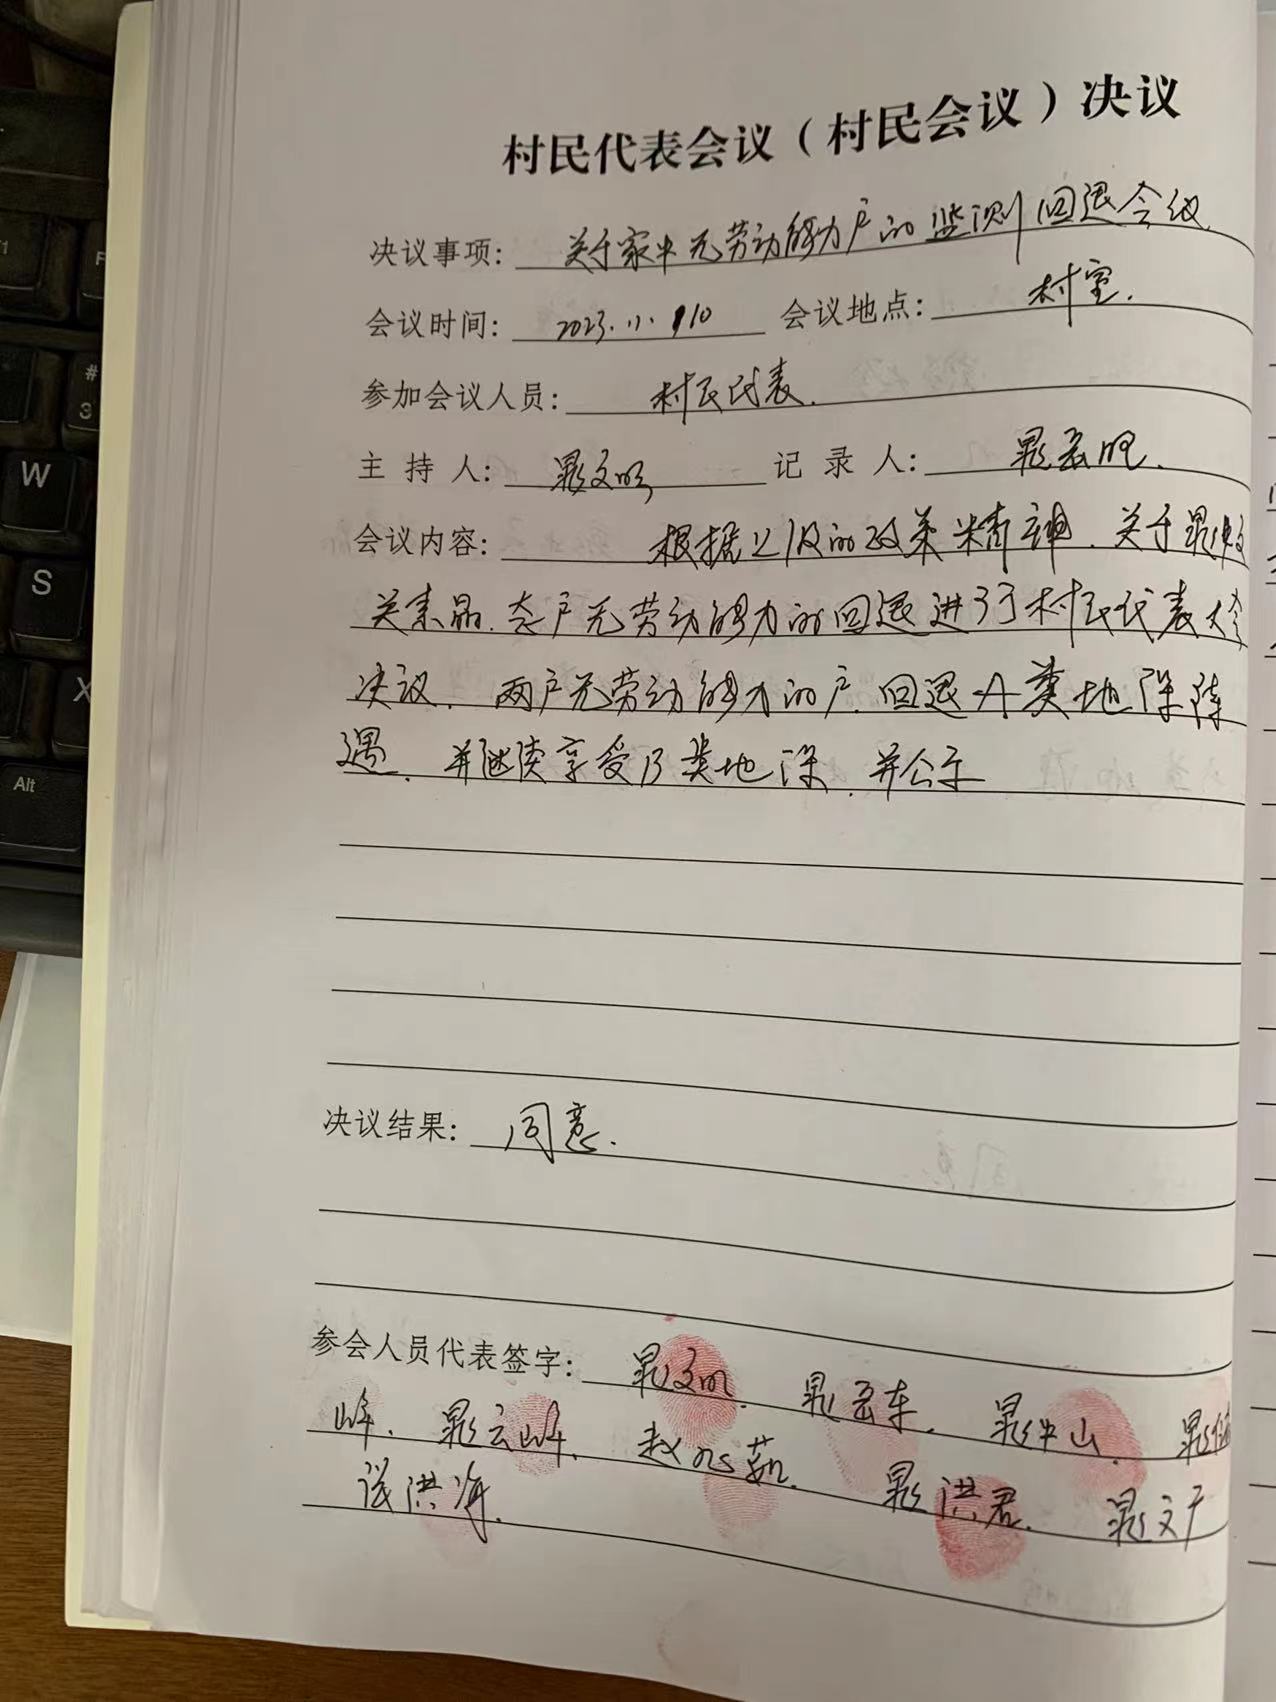 村民代表会议（村民会议）决议
决议事项: 关于家中无劳动能力户的监测回退会议
会议时间: 2023.11.10 会议地点: 村室.
参加会议人员: 村民代表.
主持人: 晁文明 记录人: 晁云旺.
会议内容: 根据上级的政策精神. 关于晁
关素晶. 户无劳动能力的回退进行村民代表大会
决议. 两户无劳动能力的户. 回退A类地保待
遇. 并继续享受B类地保. 并公示
决议结果: 同意.
参会人员代表签字: 晁文明. 晁云车. 晁中山. 晁
峰. 晁云峰. 赵茹. 晁洪君. 晁文
洪海.
F
#
3
W
S
X
Alt